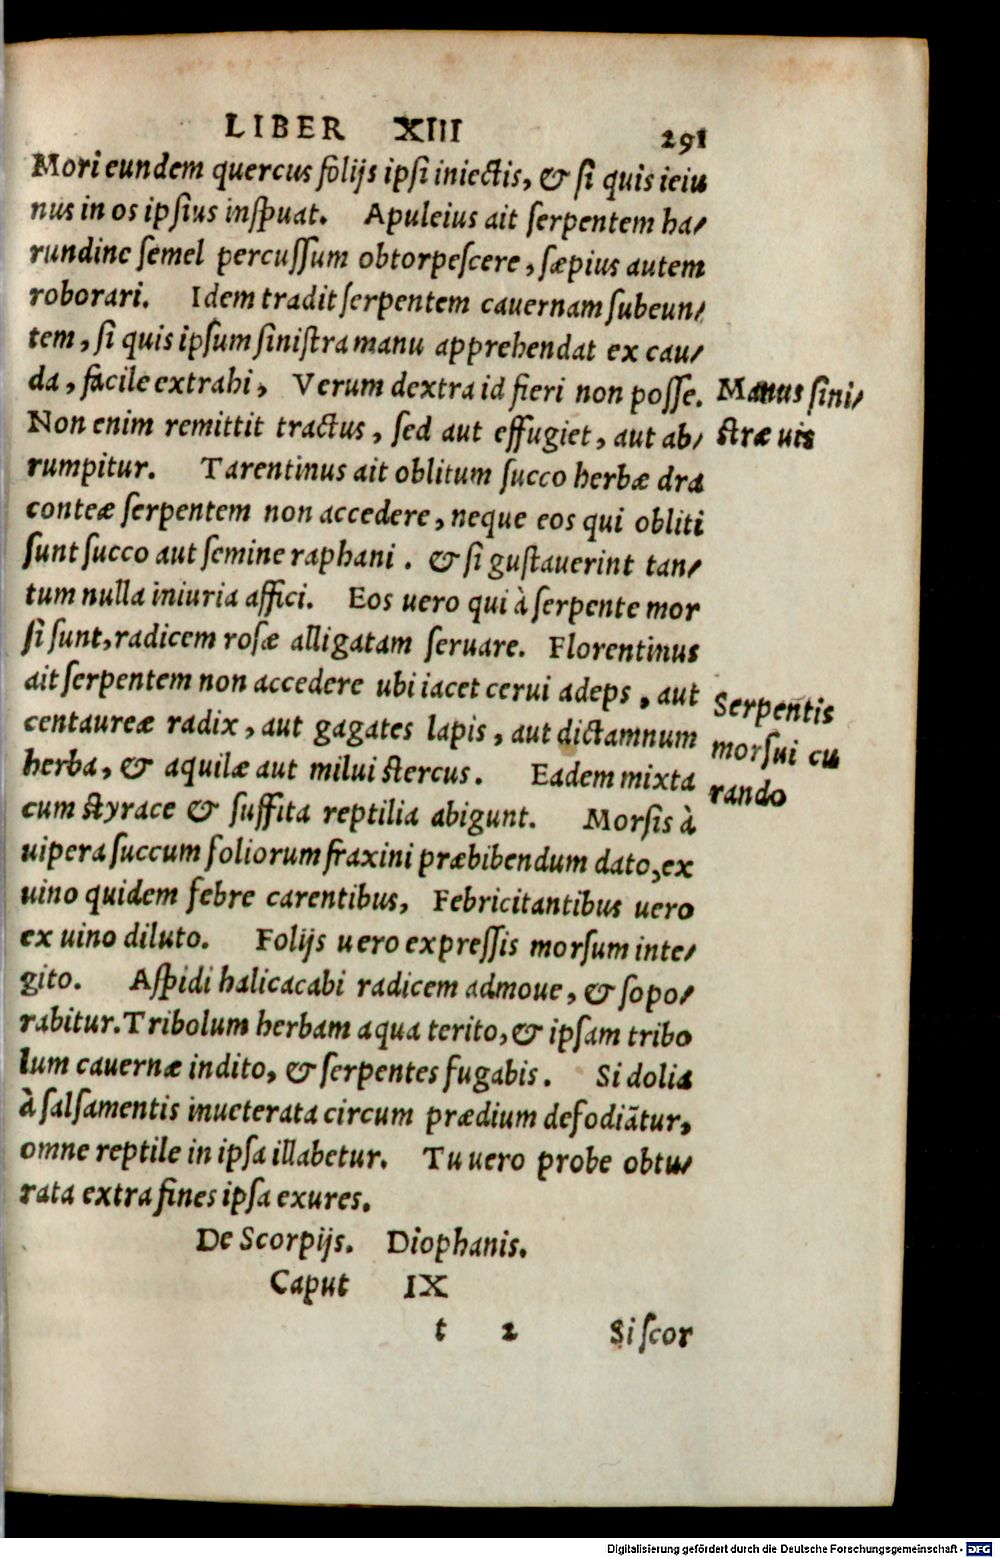 LIBER XIII 291
Mori eundem quercus folijs ipsi iniectis, & si quis ieiu
nus in os ipsius inspuat. Apuleius ait serpentem ha/
rundine semel percussum obtorpescere, sæpius autem
roborari. Idem tradit serpentem cauernam subeun/
tem, si quis ipsum sinistra manu apprehendat ex cau/
da, facile extrahi, Verum dextra id fieri non posse.
Manus sini/
Non enim remittit tractus, sed aut effugiet, aut ab/
stræ uis
rumpitur. Tarentinus ait oblitum succo herbæ dra
conteæ serpentem non accedere, neque eos qui obliti
sunt succo aut semine raphani. & si gustauerint tan/
tum nulla iniuria affici. Eos uero qui à serpente mor
si sunt, radicem rosæ alligatam seruare. Florentinus
ait serpentem non accedere ubi iacet cerui adeps, aut
Serpentis
centaureæ radix, aut gagates lapis, aut dictamnum
morsui cu
herba, & aquilæ aut milui stercus. Eadem mixta
rando
cum styrace & suffita reptilia abigunt. Morsis à
uipera succum foliorum fraxini præbibendum dato, ex
uino quidem febre carentibus, Febricitantibus uero
ex uino diluto. Folijs uero expressis morsum inte/
gito. Aspidi halicacabi radicem admoue, & sopo/
rabitur. Tribolum herbam aqua terito, & ipsam tribo
lum cauernæ indito, & serpentes fugabis. Si dolia
à salsamentis inueterata circum prædium defodiãtur,
omne reptile in ipsa illabetur. Tu uero probe obtu/
rata extra fines ipsa exures.
De Scorpijs. Diophanis.
Caput IX
t 2 Si scor
Digitalisierung gefördert durch die Deutsche Forschungsgemeinschaft - DFG